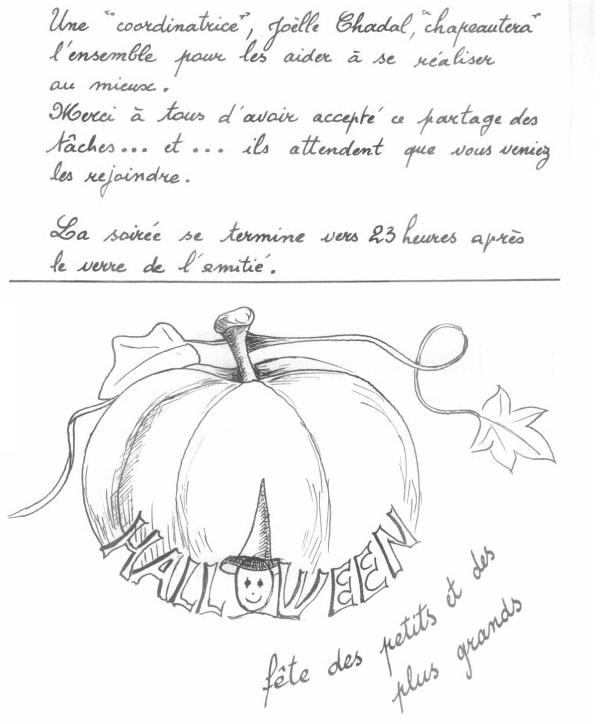 Une "coordinatrice", Joëlle Chadal, "chapeautera"
l'ensemble pour les aider à se réaliser
au mieux.
Merci à tous d'avoir accepté ce partage des
tâches... et ... ils attendent que vous veniez
les rejoindre.
La soirée se termine vers 23 heures après
le verre de l'amitié.
HALLOWEEN
fête des petits et des
plus grands